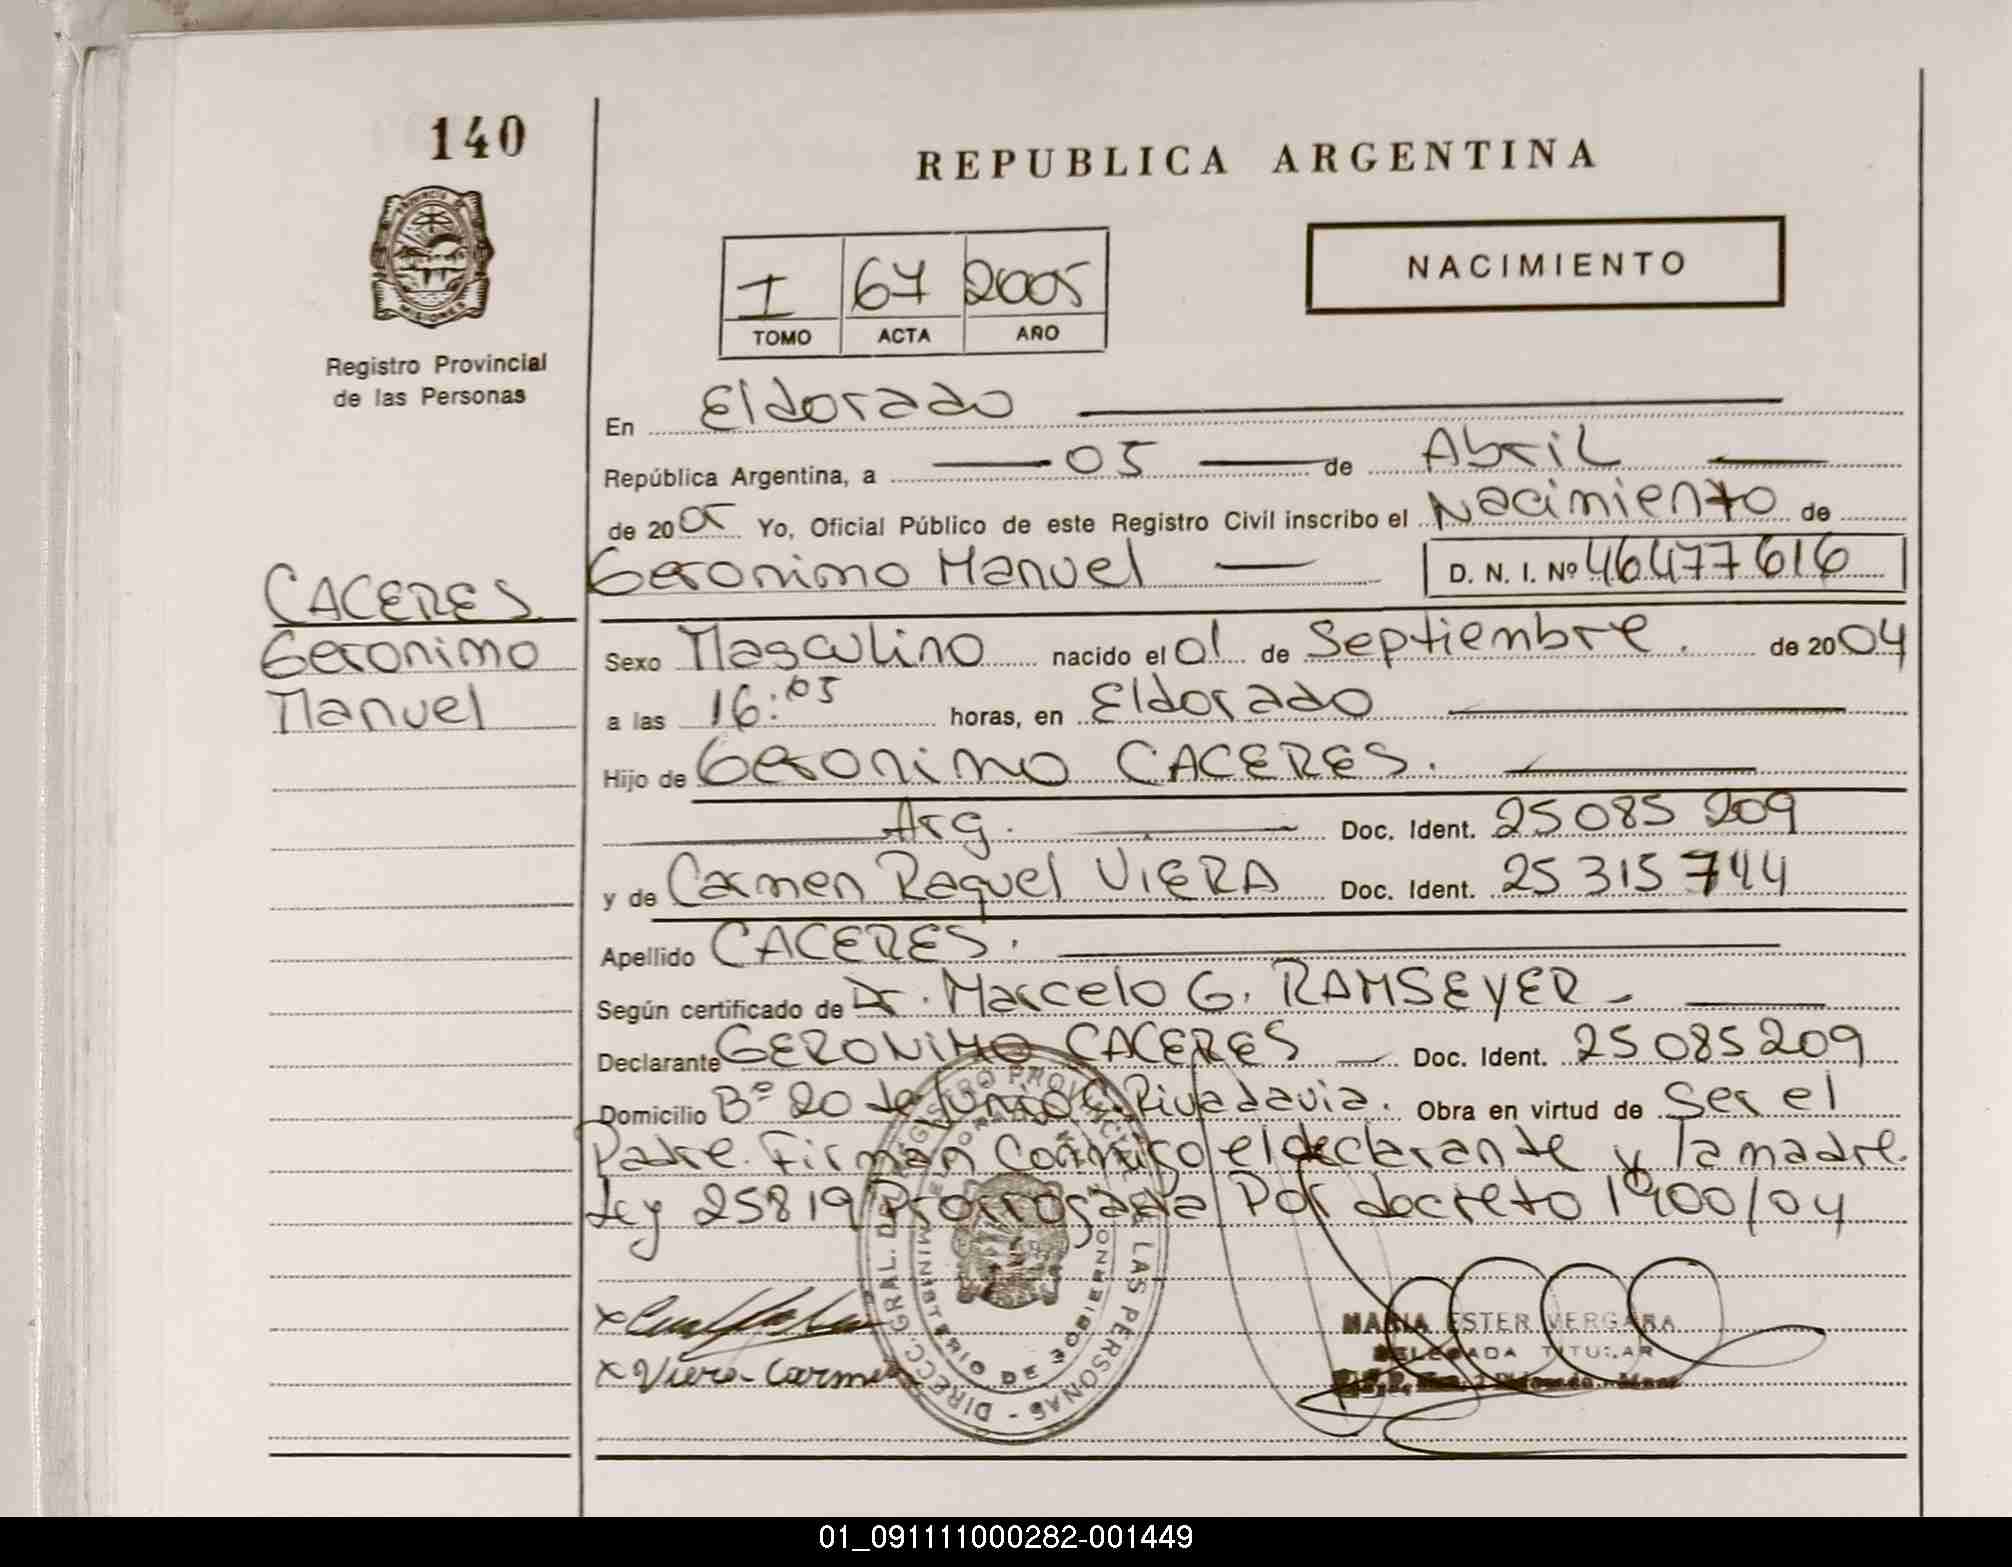 140
REPUBLICA ARGENTINA
PROVINCIA DE
MISIONES
Registro Provincial
de las Personas
I 67 2005
TOMO ACTA AÑO
NACIMIENTO
En Eldorado
República Argentina, a 05 de Abril
de 2005 Yo, Oficial Público de este Registro Civil inscribo el Nacimiento de
Geronimo Manuel D. N. I. Nº 46477616
CACERES
Geronimo
Manuel
Sexo Masculino nacido el 01 de Septiembre. de 2004
a las 16:05 horas, en Eldorado
Hijo de Geronimo CACERES.
Arg. Doc. Ident. 25085209
y de Carmen Raquel VIERA Doc. Ident. 25315744
Apellido CACERES.
Según certificado de Dr. Marcelo G. RAMSEYER
Declarante GERONIMO CACERES Doc. Ident. 25085209
Domicilio Bº 20 de Junio C. Rivadavia. Obra en virtud de Ser el
Padre. Firman Conmigo el declarante y la madre.
Ley 25819 Prorrogada Por decreto 1900/04
DIRECC. GRAL. DEL REGISTRO PROVINCIAL DE LAS PERSONAS
MINISTERIO DE GOBIERNO
x Viera Carmen
MARIA ESTER VERGARA
DELEGADA TITULAR
01_091111000282-001449